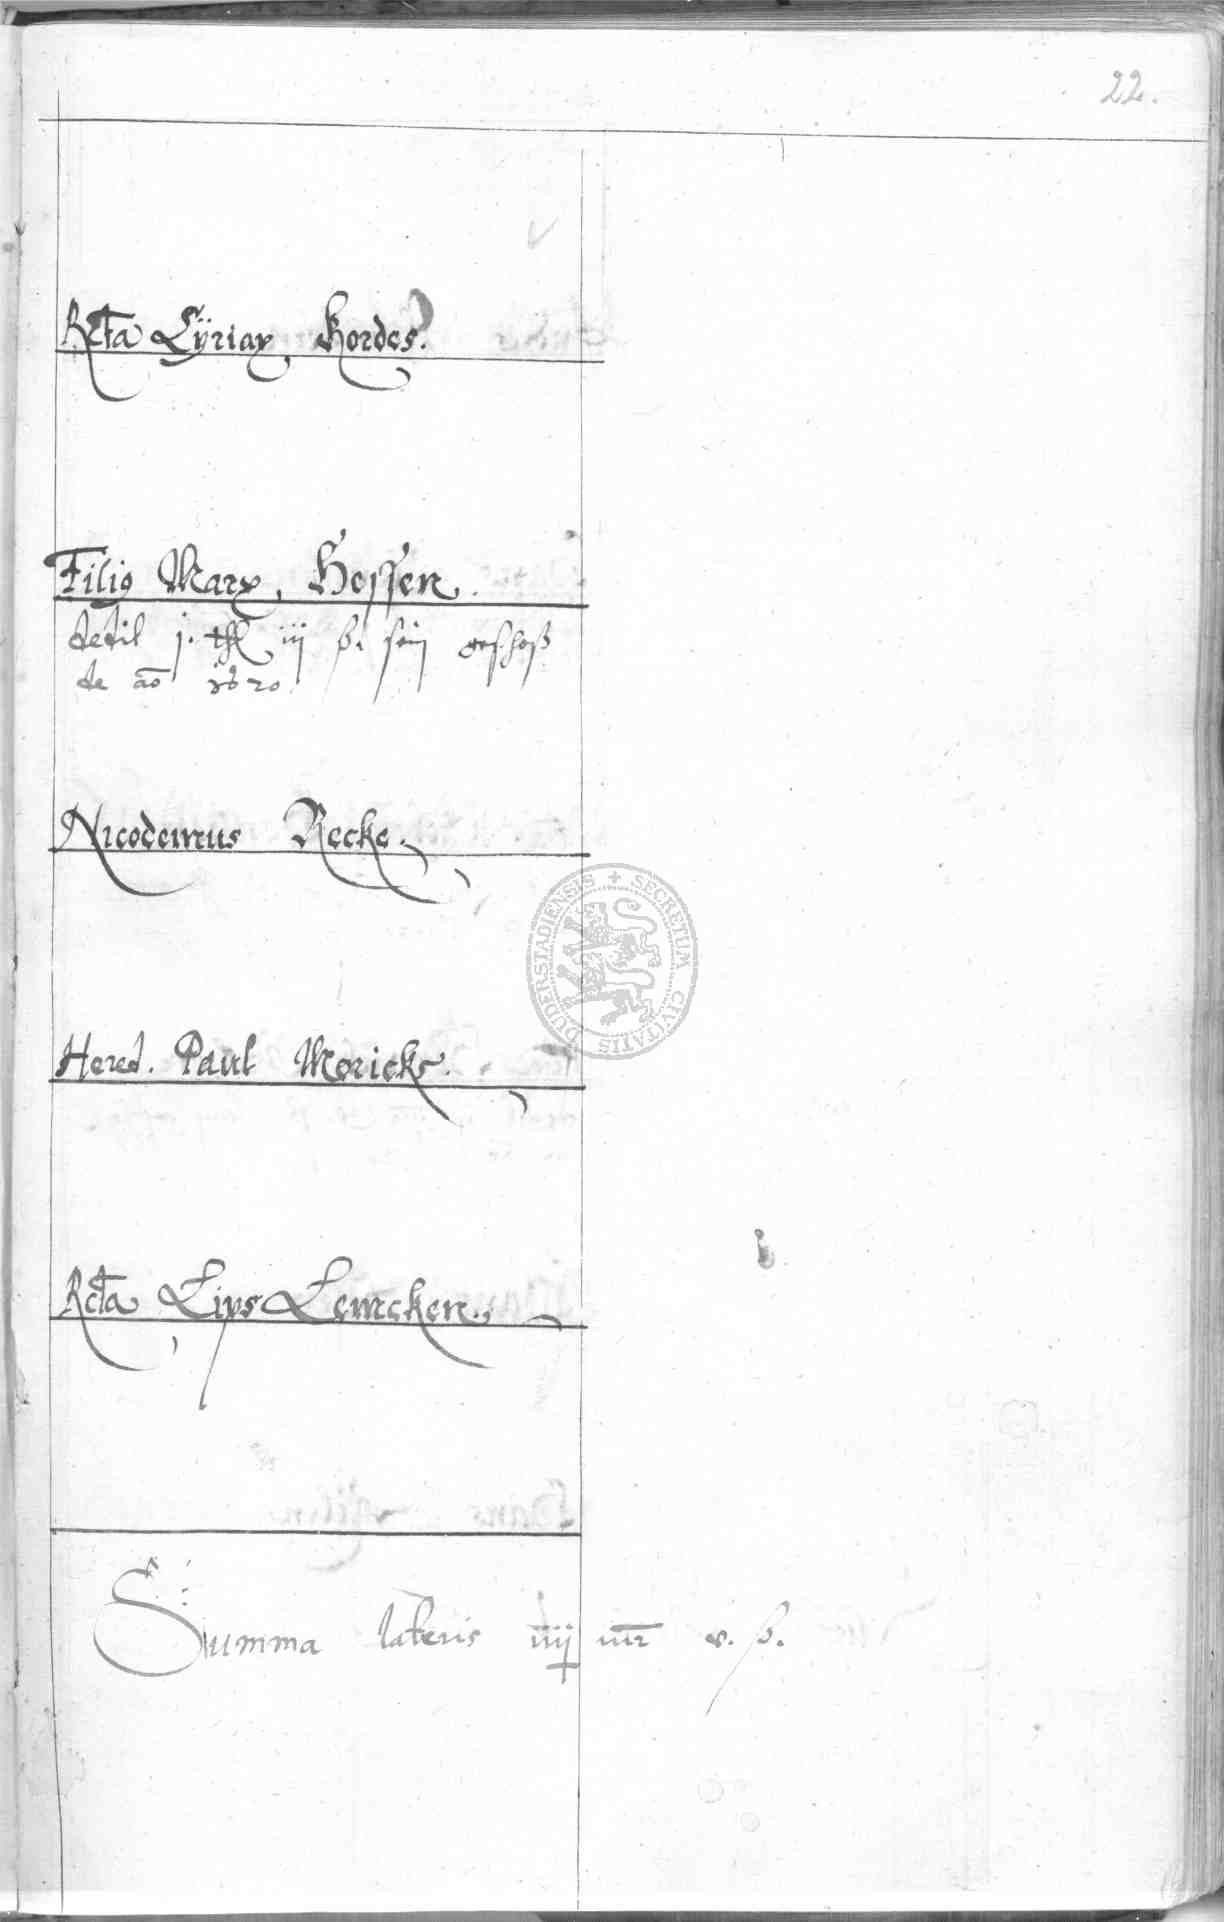 22.
Rcta Cÿriax Kordes.
Filiꝯ Marx Hessen.
dedit j. thl iij ß. sein geschoß
de ao 1620
Nicodemus Recke.
Hered. Paul Moricke.
Rcta Lips Lemcken.
Summa lateris iiij mr v. ß.
DUDERSTADIENSIS + SECRETUM CIVITATIS